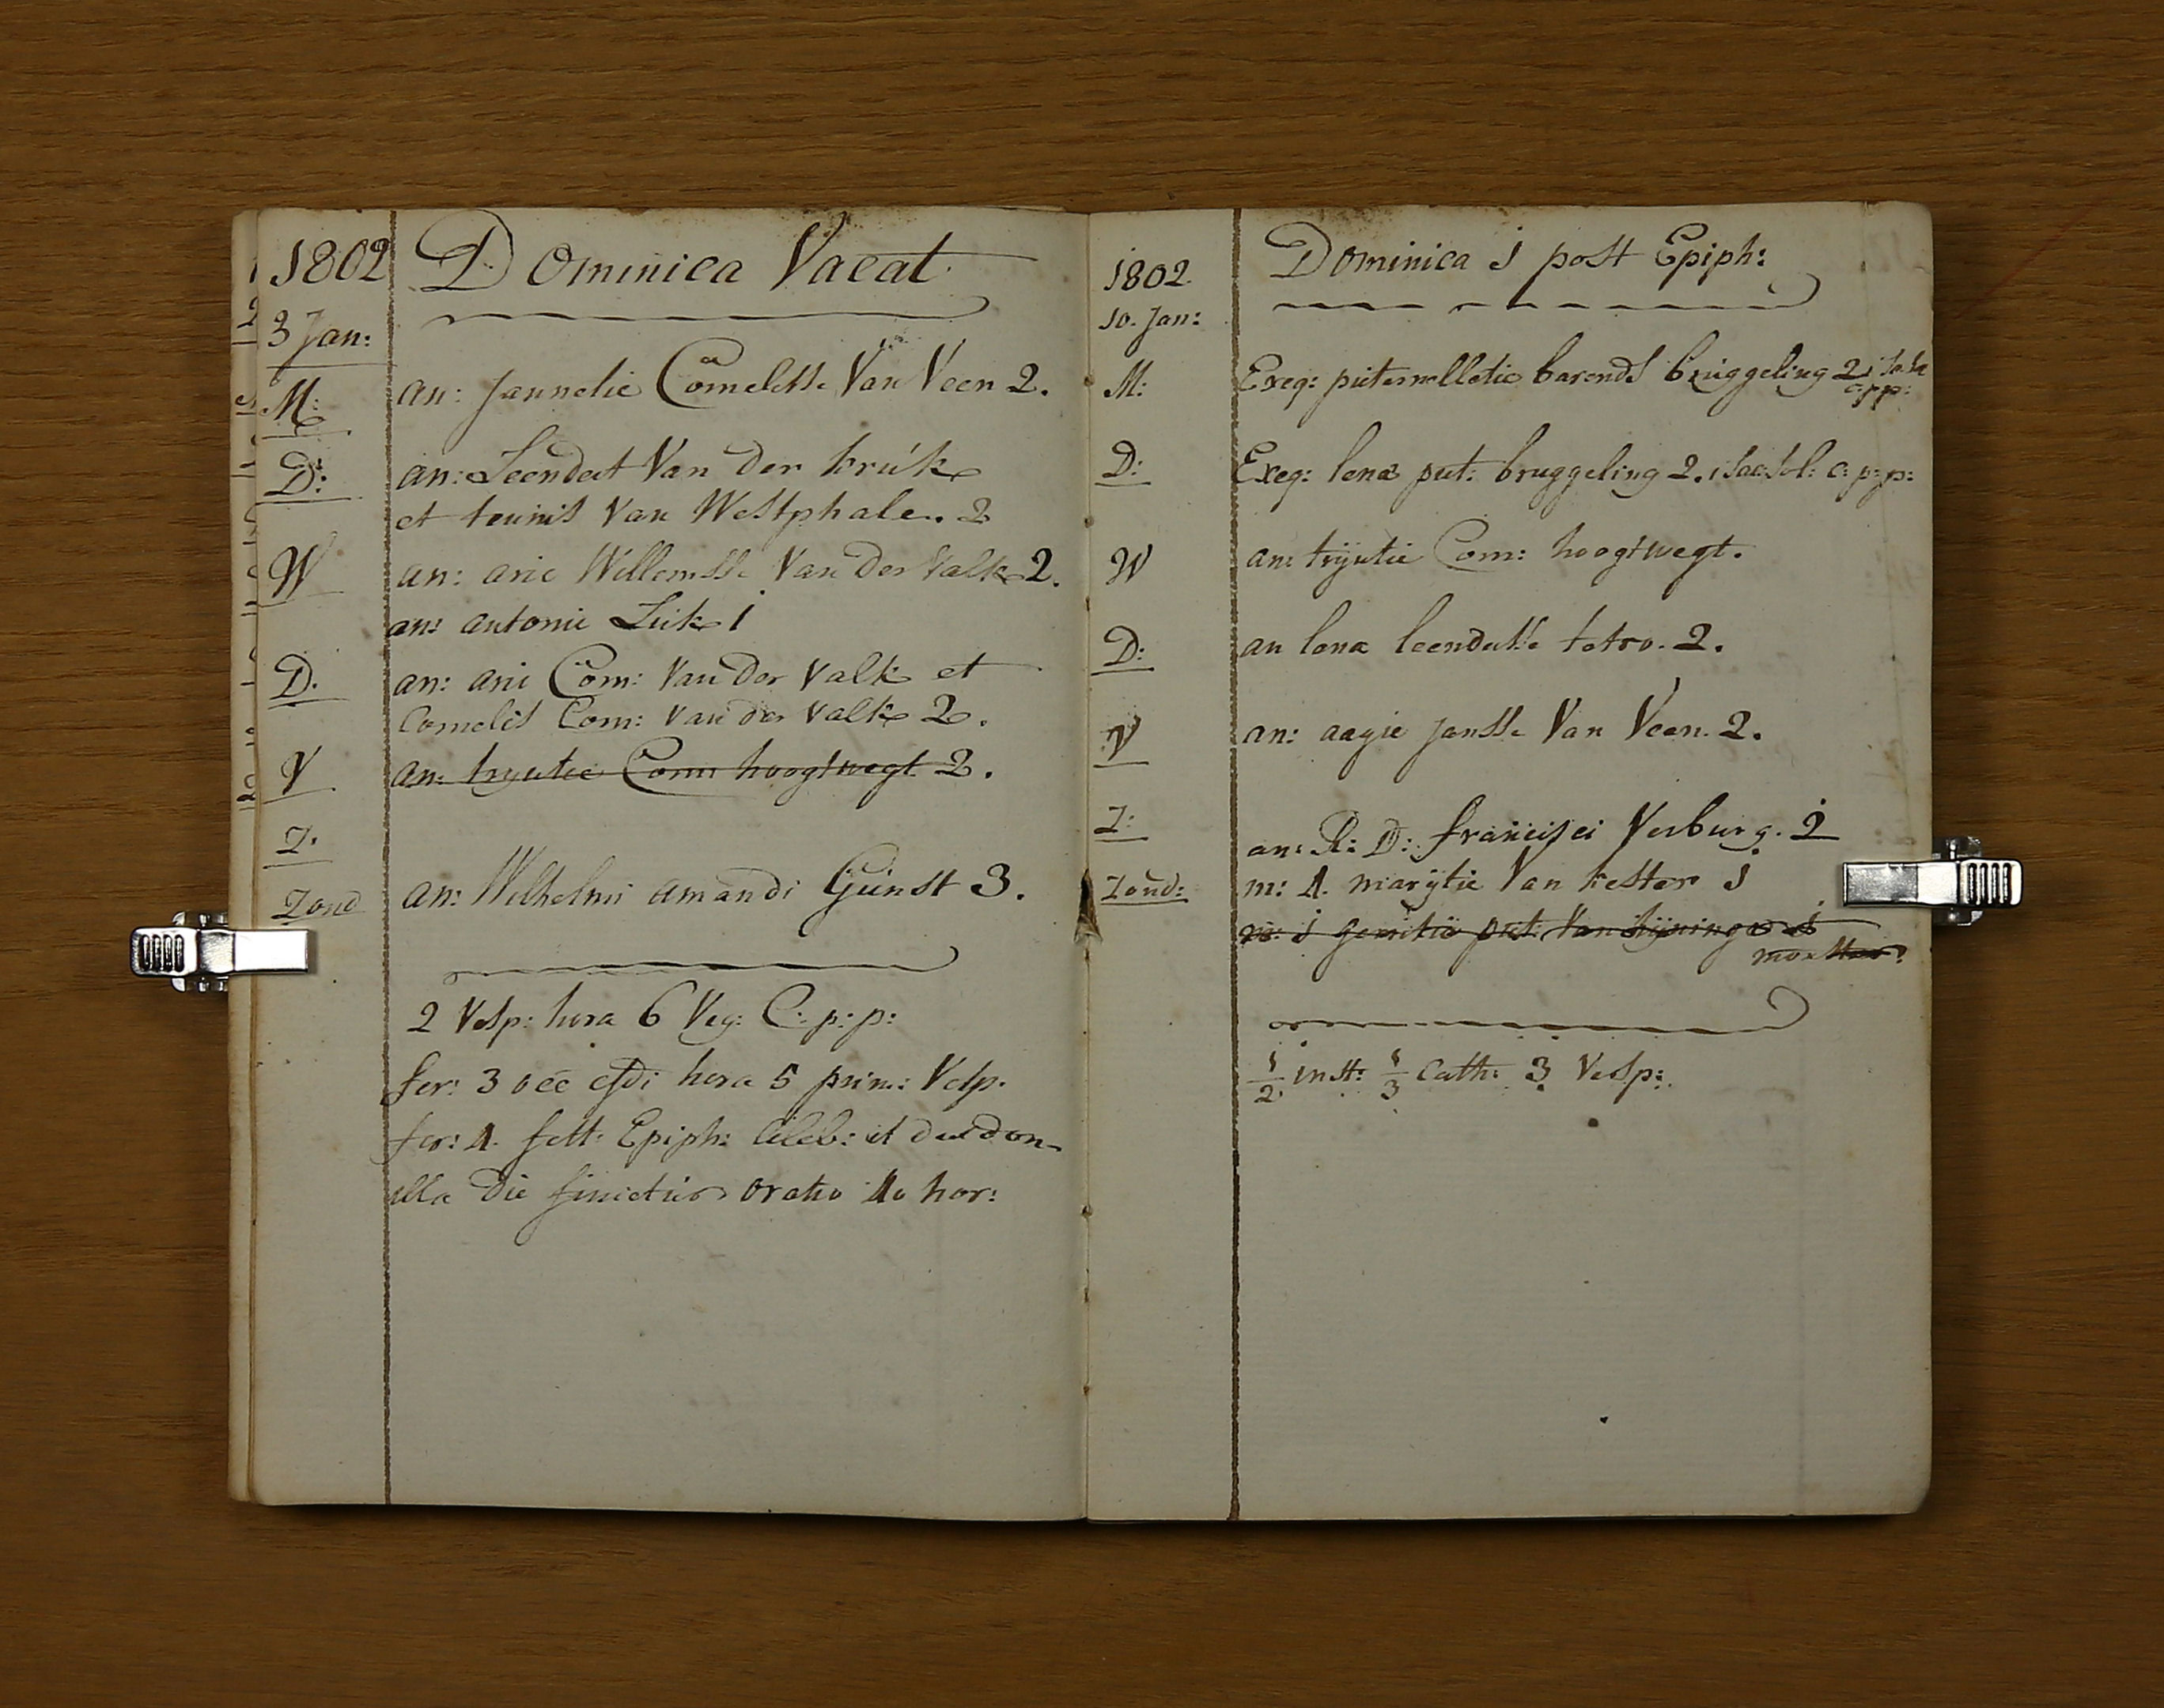 1802
Dominica Vacat
3 Jan:
M: an: Jannetie Cornelisse Van Veen 2.
D: an: Leendert Van der kruk
et teunis Van Westphalen. 2
W an: arie Willemsse Van der Valk 2.
an: antonie Luk 1
D. an: arie Corn: Van der Valk et
Cornelis Corn: Van der Valk 2.
V an: tryntie Corn: hoogtwegt 2.
Z.
Zond an: Wilhelmi amandi Gúnst 3.
2 Vesp: hora 6 Veg: C: p: p:
fer: 3 occ hora 5 prim: Vesp.
fer: 4. fest: Epiph: Celeb: et
illa die finietur oratio 40 hor:
1802
Dominica 1 post Epiph:
10. Jan:
M: Exeq: pieternelletie barends bruggeling 2
D: Exeq: lena piet: bruggeling 2. 1 c: p: p:
W an: trijntie Corn: hoogtwegt.
D: an lena leendertse tetro. 2.
V an: aagie Jansse Van Veen. 2.
Z: an: R: D: francisci Verburg. 2
Zond: m: 4. marijtie Van kester 1
m: 1 gerritie piet: Van 1
monster:
1/2 inst: 1/3 Cath: 3 Vesp: